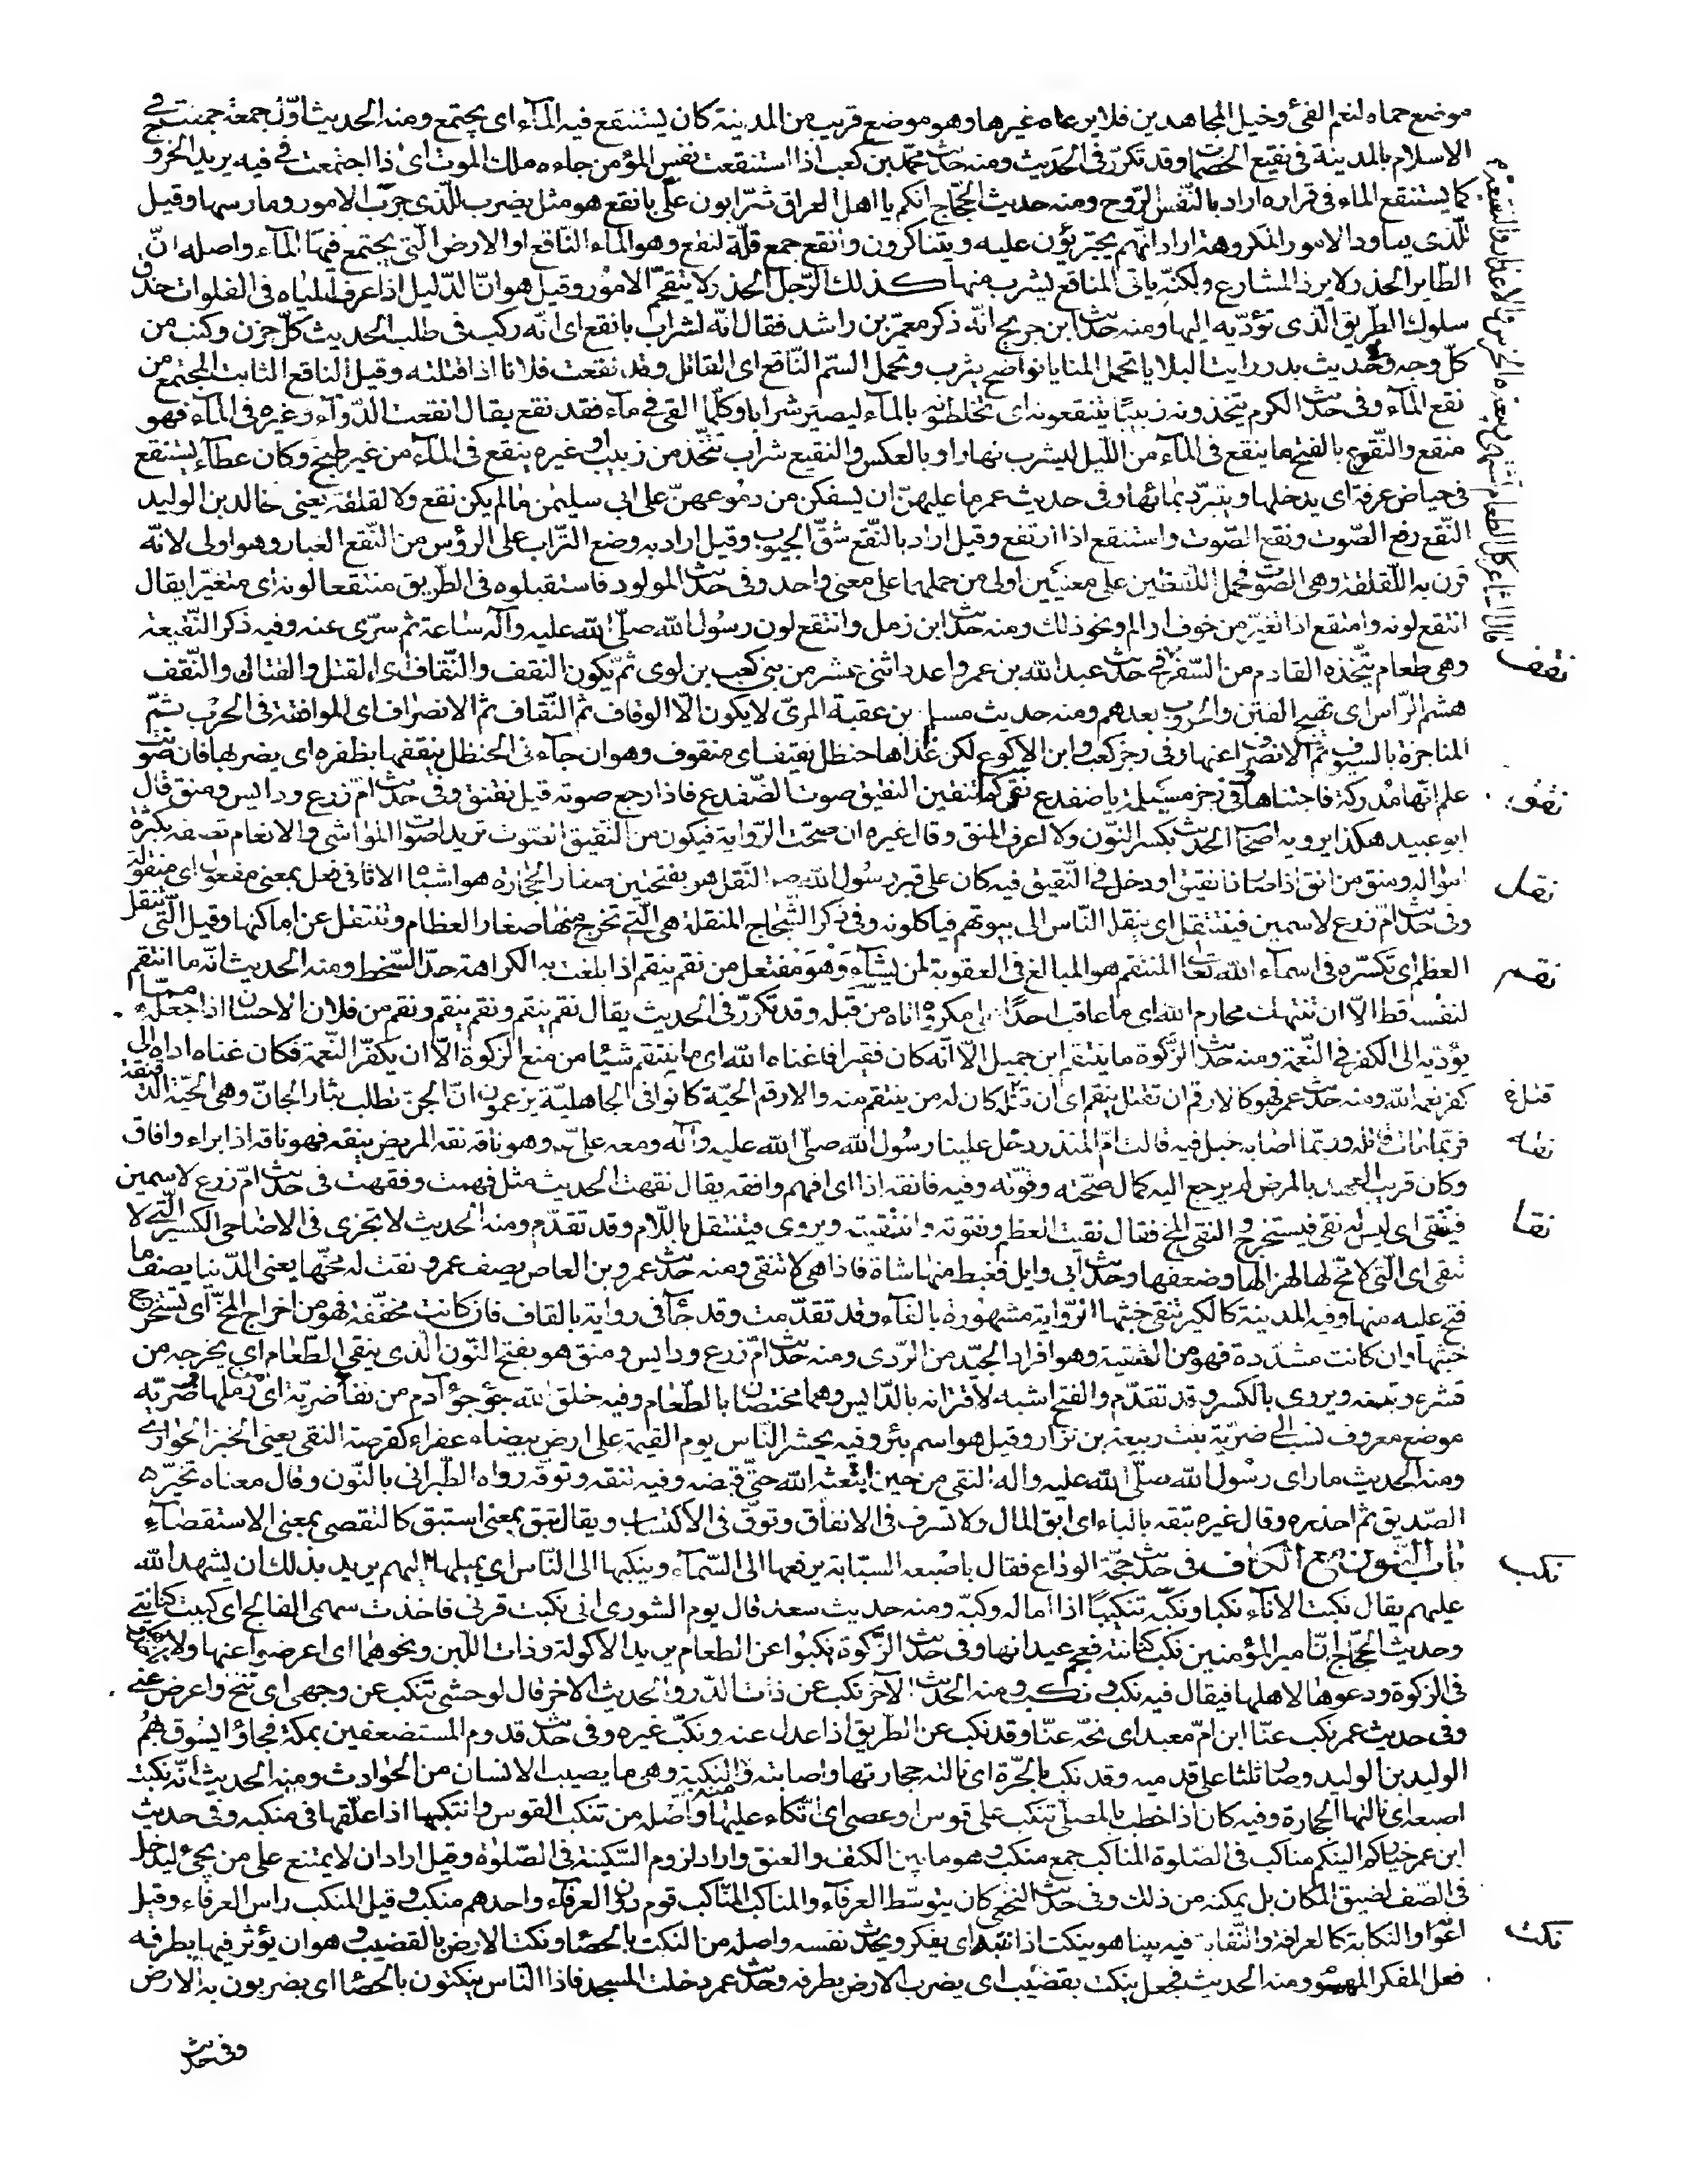 موضع حماه لنعم الفئ وخيل المجاهدين فلا يرعاه غيرها وهو موضع قريب من المدينة كان يستنقع فيه المآء اى يجتمع ومنه الحديث اوّل جمعة جمعت فى
الاسلام بالمدينة فى نقيع الخضمات وقد تكرّر فى الحديث ومنه حديث محمّد بن كعب اذا استنقعت نفس المؤمن جاءه ملك الموت اى اذا اجتمعت فى فيه يريد الخروج
كما يستنقع الماء فى قراره اراد بالنّفس الرّوح ومنه حديث الحجّاج انكم يا اهل العراق شرّابون علىّ بانقع هو مثل يضرب للّذى جرّب الامور ومارسها وقيل
للّذى يعاود الامور المكروهة اراد انّهم يجترئون عليه ويتناكرون وانقع جمع قلّة لنقع وهو المآء النّاقع او الارض الّتى يجتمع فيها المآء واصله انّ
الطّاير الحذر لا يرد المشارع ولكنّه ياتى المناقع ليشرب منها كذلك الرّجل الحذر لا يتقحّم الامور وقيل هو انّ الدّليل اذا عرف المياه فى الفلوات حذق
سلوك الطّريق الّذى تؤدّيه اليها ومنه حديث ابن جريج انّه ذكر معمر بن راشد فقال انّه لشراب بانقع اى انّه ركب فى طلب الحديث كلّ حزن وكتب من
كلّ وجه وفى حديث بدر رايت البلايا تحمل المنايا نواضح يثرب تحمل السّم النّاقع اى القاتل وقد نقعت فلانا اذا قتلته وقيل الناقع الثابت المجتمع من
نقع المآء وفى حديث الكرم يتخذونه زبيبًا ينقعونه اى يخلطونه بالمآء ليصير شرابا وكلّما القى فى مآء فقد نقع يقال انقعت الدّوآء وغيره فى المآء فهو
منقع والنّقوع بالفتح ما ينقع فى المآء من اللّيل ليشرب نهارا وبالعكس والنقيع شراب يتّخذ من زبيب او غيره ينقع فى المآء من غير طبخ وكان عطآء يستنقع
فى حياض عرفة اى يدخلها ويتبرّد بمائها وفى حديث عمر ما عليهنّ ان يسفكن من دموعهنّ على ابى سليمن ما لم يكن نقع ولا لقلقة يعنى خالد بن الوليد
النّقع رفع الصّوت ونقع الصّوت واستنقع اذا ارتفع وقيل اراد بالنّقع شقّ الجيوب وقيل اراد به وضع التّراب على الرؤس من النّقع الغبار وهو اولى لانّه
قرن به اللّقلقة وهى الصّوت فحمل اللّفظتين على معنيين اولى من حملهما على معنى واحد وفى حديث المولود فاستقبلوه فى الطّريق منتقعا لونه اى متغيّرا يقال
انتقع لونه وامتقع اذا تغيّر من خوف او الم ونحو ذلك ومنه حديث ابن زمل وانتقع لون رسول الله صلّى الله عليه وآله ساعة ثمّ سرّى عنه وفيه ذكر النّقيعة
وهى طعام يتّخذه القادم من السّفر
نقف
فى حديث عبد الله بن عمرو اعدد اثنى عشر من بنى كعب بن لوى ثمّ يكون النقف والنّقاف اى القتل والقتال والنّقف
هشم الرّاس اى تهيج الفتن والحروب بعدهم ومنه حديث مسلم بن عقبة المرىّ لا يكون الّا الوقاف ثم النّقاف ثم الانصراف اى الموافقة فى الحرب ثمّ
المناجزة بالسيوف ثمّ الانصراف عنها وفى رجز كعب وابن الاكوع لكن غذاها حنظل نقيف اى منقوف وهو ان جآءنى الحنظل ينقفها بظفره اى يضربها فان صوّتت
علم انّها مدركة فاجتناها
نقق
فى رجز مسيلمة يا ضفدع نقّى كم تنقين النقيق صوت الضّفدع فاذا رجع صوته قيل نقنق وفى حديث امّ زرع ودايس ومنق قال
ابو عبيد هكذا يرويه اصحاب الحديث بكسر النّون ولا اعرف المنق وقال غيره ان صحّت الرّواية فيكون من النّقيق الصّوت تريد اصوات المواشى والانعام تصفه بكثرة
امواله ومنق من انق اذا صار ذا نقيق او دخل فى النّقيق
نقل
فيه كان على قبر رسول الله صـ النّقل هو بفتحتين صغار الحجارة هو اشباه الاثافى فعل بمعنى مفعول اى منقولة
وفى حديث امّ زرع لا سمين فينتقل اى ينقل النّاس الى بيوتهم فياكلونه وفى ذكر الشّجاج المنقلة هى الّتى تخرج منها صغار العظام وتنتقل عن اماكنها وقيل الّتى تنقل
العظم اى تكسّره
نقم
فى اسمآء الله تعالى المنتقم هو المبالغ فى العقوبة لمن يشآء وهو مفتعل من نقم ينقم اذا بلغت به الكراهة حدّ السّخط ومنه الحديث انّه ما انتقم
لنفسه قطّ الّا ان تنتهك محارم الله اى ما عاقب احدًا على مكروه اتاه من قبله وقد تكرّر فى الحديث يقال نقم ينقم ونقم ينقم ونقم من فلان الاحسان اذا جعله ممّا
يؤدّيه الى الكفر فى النّعمة ومنه حديث الزّكوة ما ينقم ابن جميل الّا انّه كان فقيرا فاغناه الله اى ما ينقم شيئا من منع الزّكوة الّا ان يكفر النّعمة فكان غناه اداه الى
كفر نعمة الله ومنه حديث عمر فهو كالارقم ان تقتل ينقم اى ان قتله كان له من ينتقم منه والارقم الحيّة كانوا فى الجاهليّة يزعمون انّ الجنّ تطلب بثار الجانّ وهى الحيّة الدقيقة
فربّما مات قاتله وربّما اصابه خبل
نقه
فيه قالت امّ المنذر دخل علينا رسول الله صلّى الله عليه وآله ومعه علىّ وهو ناقه نقه المريض ينقه فهو ناقه اذا براء وافاق
وكان قريب العهد بالمرض لم يرجع اليه كمال صحّته وقوّته وفيه فانقه اذا اى افهم وافقه يقال نقهت الحديث مثل فهمت وفقهت
نقا
فى حديث امّ زرع لا سمين
فينتقى اى ليس له نقى فيستخرج والنقى المخ فقال نقيت العظم ونقوته وانتقيته ويروى فينتقل باللّام وقد تقدّم ومنه الحديث لا تجزى فى الاضاحى الكسير الّتى لا
تنقى اى الّتى لا مخّ لها لهزالها وضعفها وحديث ابى وايل فغبط منها شاة فاذا هى لا تنقى ومنه حديث عمرو بن العاص يصف عمر ونقت له مخّتها يعنى الدّنيا يصف ما
فتح عليه منها وفيه المدينة كالكير تنقى خبثها الرّواية مشهورة بالفآء وقد تقدّمت وقد جآء فى رواية بالقاف فان كانت مخفّفة فهو من اخراج المخّ اى تستخرج
خبثها وان كانت مشدّدة فهو من التنقية وهو افراد الجيّد من الرّدى ومنه حديث امّ زرع ودايس ومنق هو بفتح النّون الّذى ينقى الطّعام اى يخرجه من
قشره وتبنه ويروى بالكسر وقد تقدّم والفتح اشبه لاقترانه بالدّايس وهما مختصّان بالطّعام وفيه خلق الله جؤجؤ آدم من نقا ضريّة اى رملها وضريّه
موضع معروف نسب الى ضريّة بنت ربيعة بن نزار وقيل هو اسم بئر وفيه يحشر النّاس يوم القيمة على ارض بيضاء عفراء كقرصة النقى يعنى الخبز الحوارى
ومنه الحديث ما راى رسول الله صلّى الله عليه وآله النقى من حين ابتعثه الله حتّى قبضه وفيه تنقه وتوقه رواه الطّبرانى بالنّون وقال معناه تخيّره
الصّديق ثم احذره وقال غيره تبقه بالباء اى ابق المال ولا تسرف فى الانفاق وتوقّ فى الاكتساب ويقال تبقّ بمعنى استبق كالتقصى بمعنى الاستقصآء
باب النّون مع الكاف
نكب
فى حديث حجّة الوداع فقال باصبعه السبّابة يرفعها الى السّمآء وينكبها الى النّاس اى يميلها اليهم يريد بذلك ان يشهد الله
عليهم يقال نكبت الاناء نكبا ونكّبه تنكيبًا اذا اماله وكبّه ومنه حديث سعد قال يوم الشورى انى نكبت قرنى فاخذت سهمى الفالج اى كببت كنانتى
وحديث الحجّاج انّ امير المؤمنين نكب كنانته فعجم عيدانها وفى حديث الزّكوة نكبوا عن الطعام يريد الاكولة وذات اللّبن ونحوهما اى اعرضوا عنها ولا تاخذوها
فى الزكوة ودعوها لاهلها فيقال فيه نكب ونكب ومنه الحديث الآخر نكب عن ذات الدّر والحديث الاخر قال لوحشى تنكب عن وجهى اى تنحّ واعرض عنى
وفى حديث عمر نكب عنّا ابن امّ معبد اى نحّه عنّا وقد نكب عن الطّريق اذا عدل عنه ونكّب غيره وفى حديث قدوم المستضعفين بمكة فجاؤا يسوق بهم
الوليد بن الوليد وصار ثلثا على قدميه وقد نكب بالحرّة اى نالته حجارتها واصابته والنكبة وهى ما يصيب الانسان من الحوادث ومنه الحديث انّه نكبت
اصبعه اى نالتها الحجارة وفيه كان اذا خطب بالمصلّى تنكب على قوس او عصى اى اتّكاء عليها واصله من تنكب القوس وانتكبها اذا علّقها فى منكبه وفى حديث
ابن عمر خياركم الينكم مناكب فى الصّلوة المناكب جمع منكب وهو ما بين الكتف والعنق واراد لزوم السّكينة فى الصّلوة وقيل اراد ان لا يمتنع على من يجئ ليدخل
فى الصّف لضيق المكان بل يمكنه من ذلك وفى حديث النخعى كان يتوسّط العرفآء والمناكب المناكب قوم دون العرفآء واحدهم منكب وقيل المنكب راس العرفاء وقيل
اعوانه والنكابة كالعرافة والنّقابة
نكت
فيه بينا هو ينكت اذ انتبه اى يفكر ويحدّث نفسه واصله من النكت بالحصا ونكت الارض بالقضيب وهو ان يؤثر فيها بطرفه
فعل المفكر المهموم ومنه الحديث فجعل ينكت بقضيب اى يضرب الارض بطرفه وحديث عمر دخلت المسجد فاذا النّاس ينكتون بالحصا اى يضربون به الارض
وفى حديث